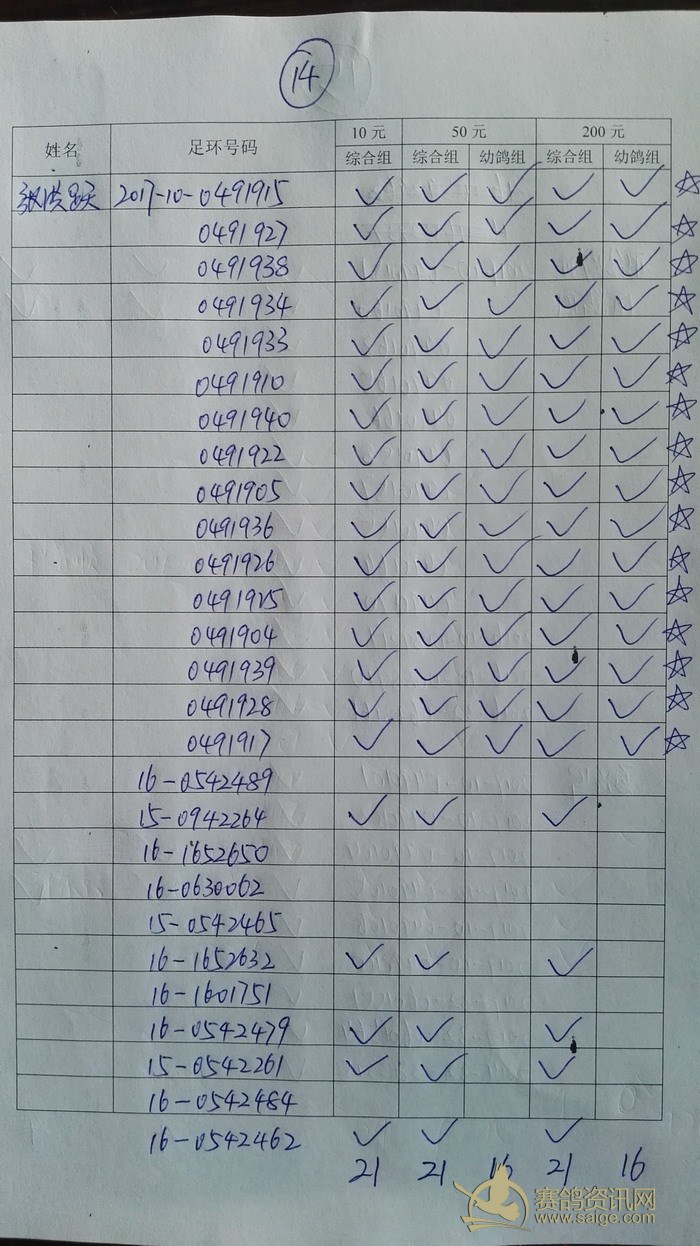 14
姓名 足环号码 10 元 50 元 200 元
综合组 综合组 幼鸽组 综合组 幼鸽组
2017-10-0491915 ✓ ✓ ✓ ✓ ✓ ☆
0491927 ✓ ✓ ✓ ✓ ✓ ☆
0491938 ✓ ✓ ✓ ✓ ✓ ☆
0491934 ✓ ✓ ✓ ✓ ✓ ☆
0491933 ✓ ✓ ✓ ✓ ✓ ☆
0491910 ✓ ✓ ✓ ✓ ✓ ☆
0491940 ✓ ✓ ✓ ✓ ✓ ☆
0491922 ✓ ✓ ✓ ✓ ✓ ☆
0491905 ✓ ✓ ✓ ✓ ✓ ☆
0491936 ✓ ✓ ✓ ✓ ✓ ☆
0491926 ✓ ✓ ✓ ✓ ✓ ☆
0491925 ✓ ✓ ✓ ✓ ✓ ☆
0491904 ✓ ✓ ✓ ✓ ✓ ☆
0491939 ✓ ✓ ✓ ✓ ✓ ☆
0491928 ✓ ✓ ✓ ✓ ✓ ☆
0491917 ✓ ✓ ✓ ✓ ✓ ☆
16-0542489
15-0942264 ✓ ✓ ✓
16-1652650
16-0630062
15-0542465
16-1652632 ✓ ✓ ✓
16-1601751
16-0542479 ✓ ✓ ✓
15-0542261 ✓ ✓ ✓
16-0542484
16-0542462 ✓ ✓ ✓
21 21 16 21 16
赛鸽资讯网
www.saige.com